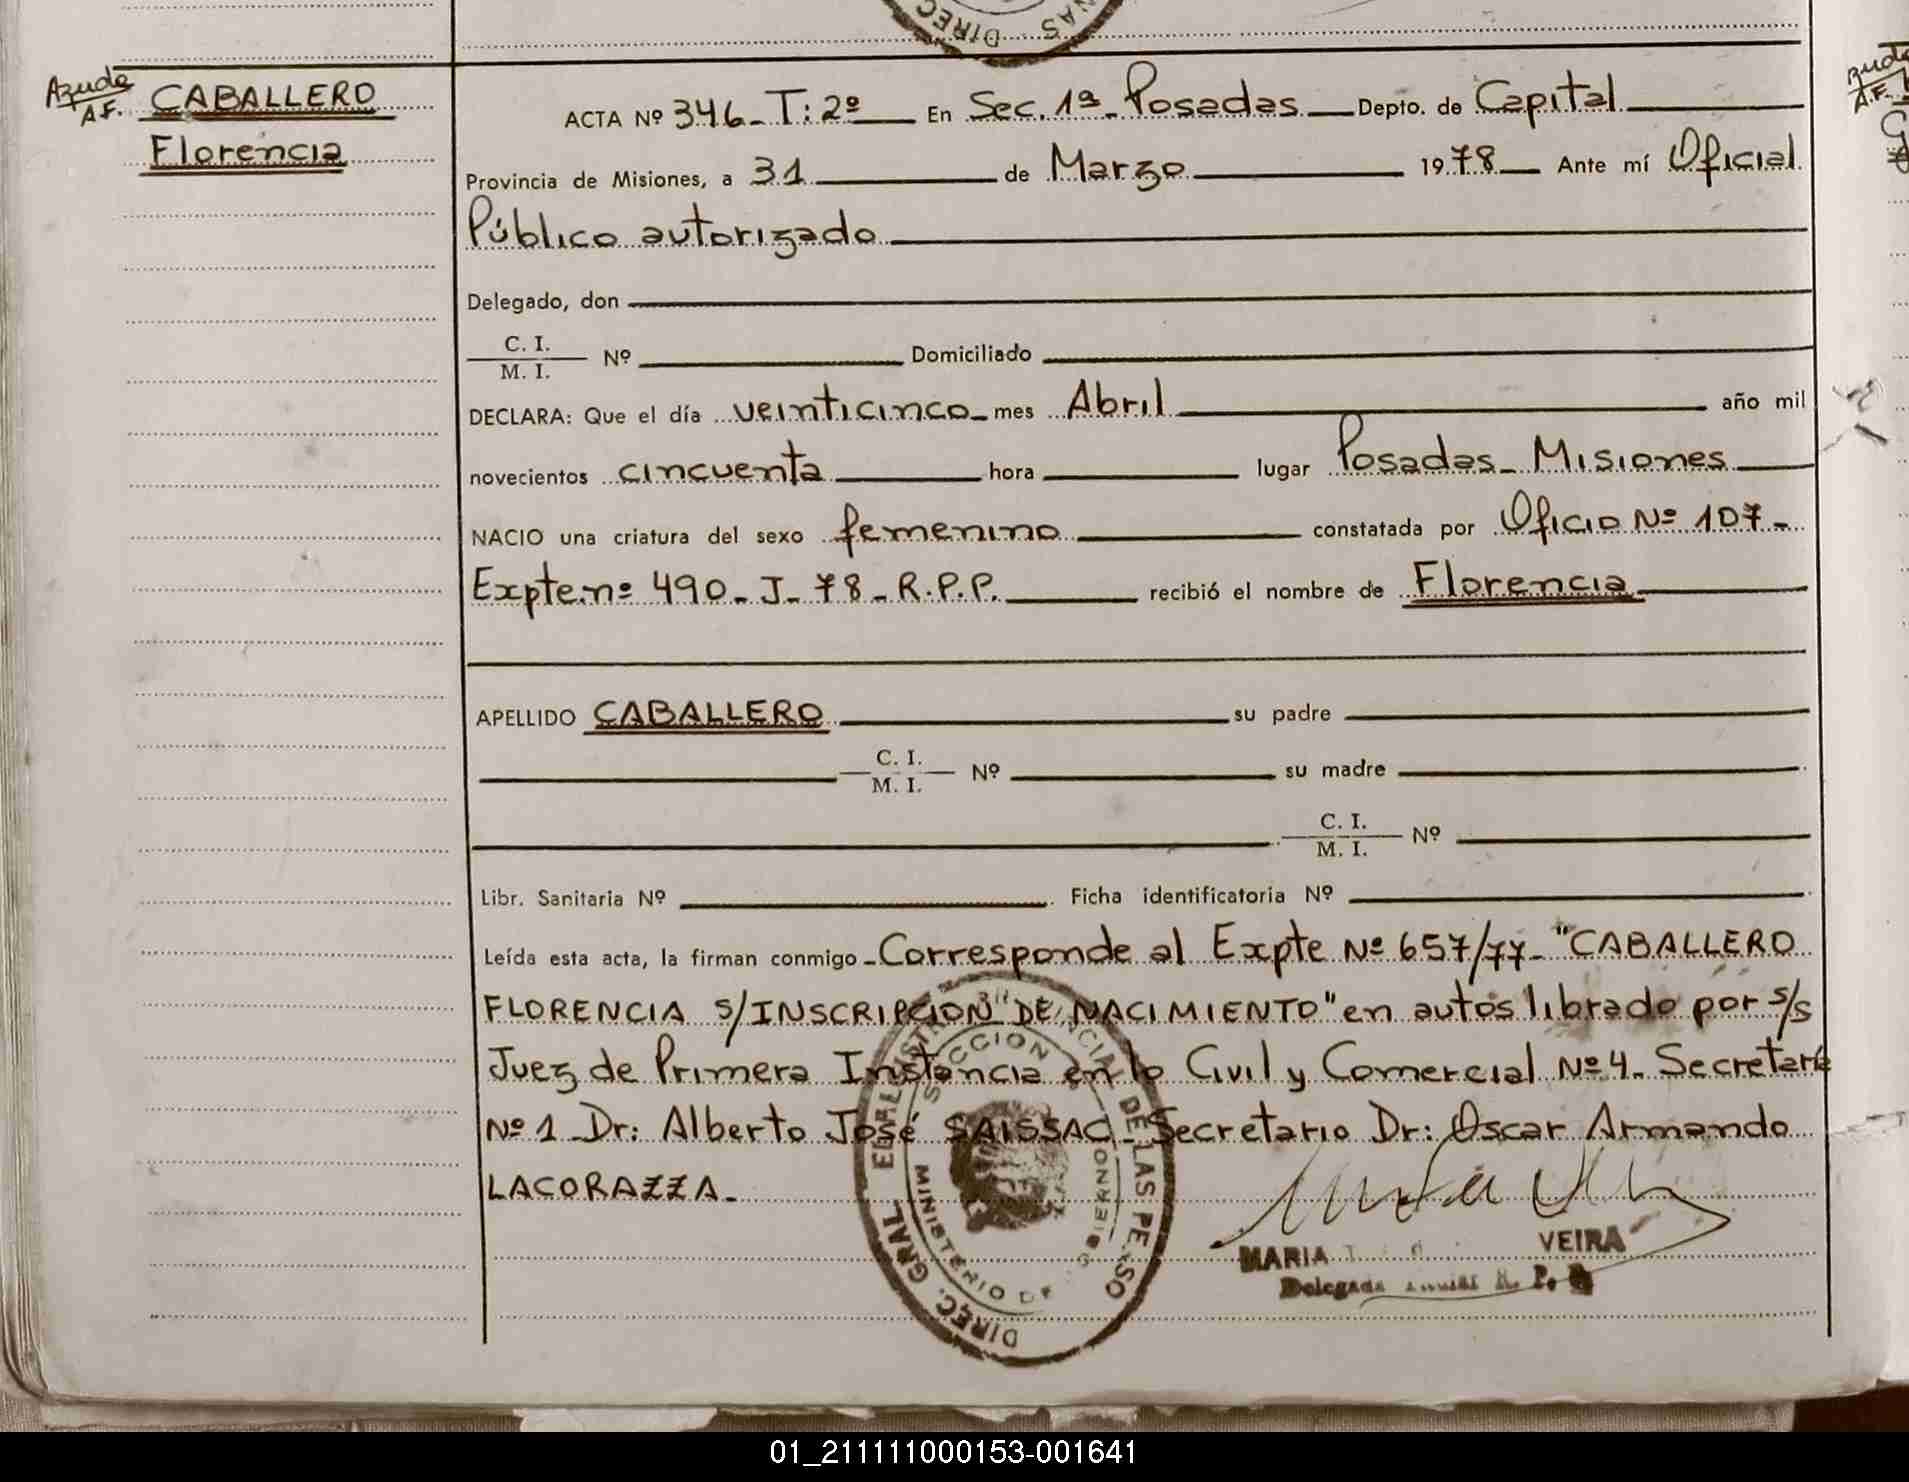 DIREC. NAS
Azuda
A.F.
CABALLERO
Florencia
ACTA Nº 346_ T: 2º En Sec. 1ª_ Posadas Depto. de Capital
Provincia de Misiones, a 31 de Marzo 1978 Ante mí Oficial
Público autorizado
Delegado, don
C. I.
M. I. Nº Domiciliado
DECLARA: Que el día veinticinco_ mes Abril año mil
novecientos cincuenta hora lugar Posadas_ Misiones
NACIO una criatura del sexo femenino constatada por Oficio Nº 107_
Expte.nº 490_ J_ 78_ R.P.P. recibió el nombre de Florencia
APELLIDO CABALLERO su padre
C. I.
M. I. Nº su madre
C. I.
M. I. Nº
Libr. Sanitaria Nº Ficha identificatoria Nº
Leída esta acta, la firman conmigo _Corresponde al Expte Nº 657/77_ "CABALLERO
FLORENCIA S/INSCRIPCION DE NACIMIENTO" en autos librado por s/s
Juez de Primera Instancia en lo Civil y Comercial Nº 4_ Secretaría
Nº 1_ Dr: Alberto José SAISSAC_ Secretario Dr: Oscar Armando
LACORAZZA_
DIREC. GRAL. DE LAS PE SO
SECCION
MINISTERIO DE GOBIERNO
MARIA VEIRA
Delegada
01_211111000153-001641